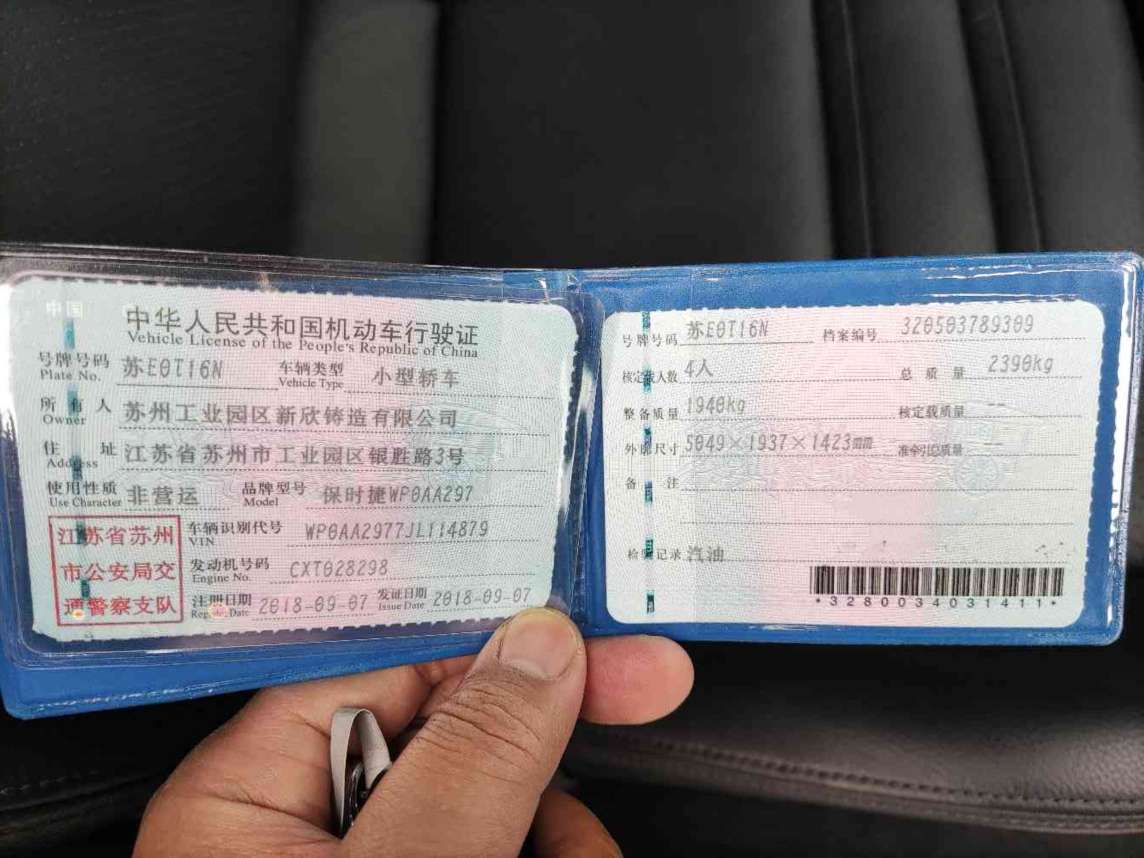 中国
中华人民共和国机动车行驶证
Vehicle License of the People's Republic of China
号牌号码 苏E0T16N 车辆类型 小型轿车
Plate No. Vehicle Type
所有人 苏州工业园区新欣铸造有限公司
Owner
住址 江苏省苏州市工业园区银胜路3号
Address
使用性质 非营运 品牌型号 保时捷WP0AA297
Use Character Model
江苏省苏州
市公安局交
通警察支队
车辆识别代号 WP0AA2977JL114879
VIN
发动机号码 CXT028298
Engine No.
注册日期 2018-09-07 发证日期 2018-09-07
Register Date Issue Date
号牌号码 苏E0T16N 档案编号 320503789309
核定载人数 4人 总质量 2390kg
整备质量 1940kg 核定载质量 --
外廓尺寸 5049×1937×1423mm 准牵引总质量 --
备注
检验记录 汽油
*3280034031411*